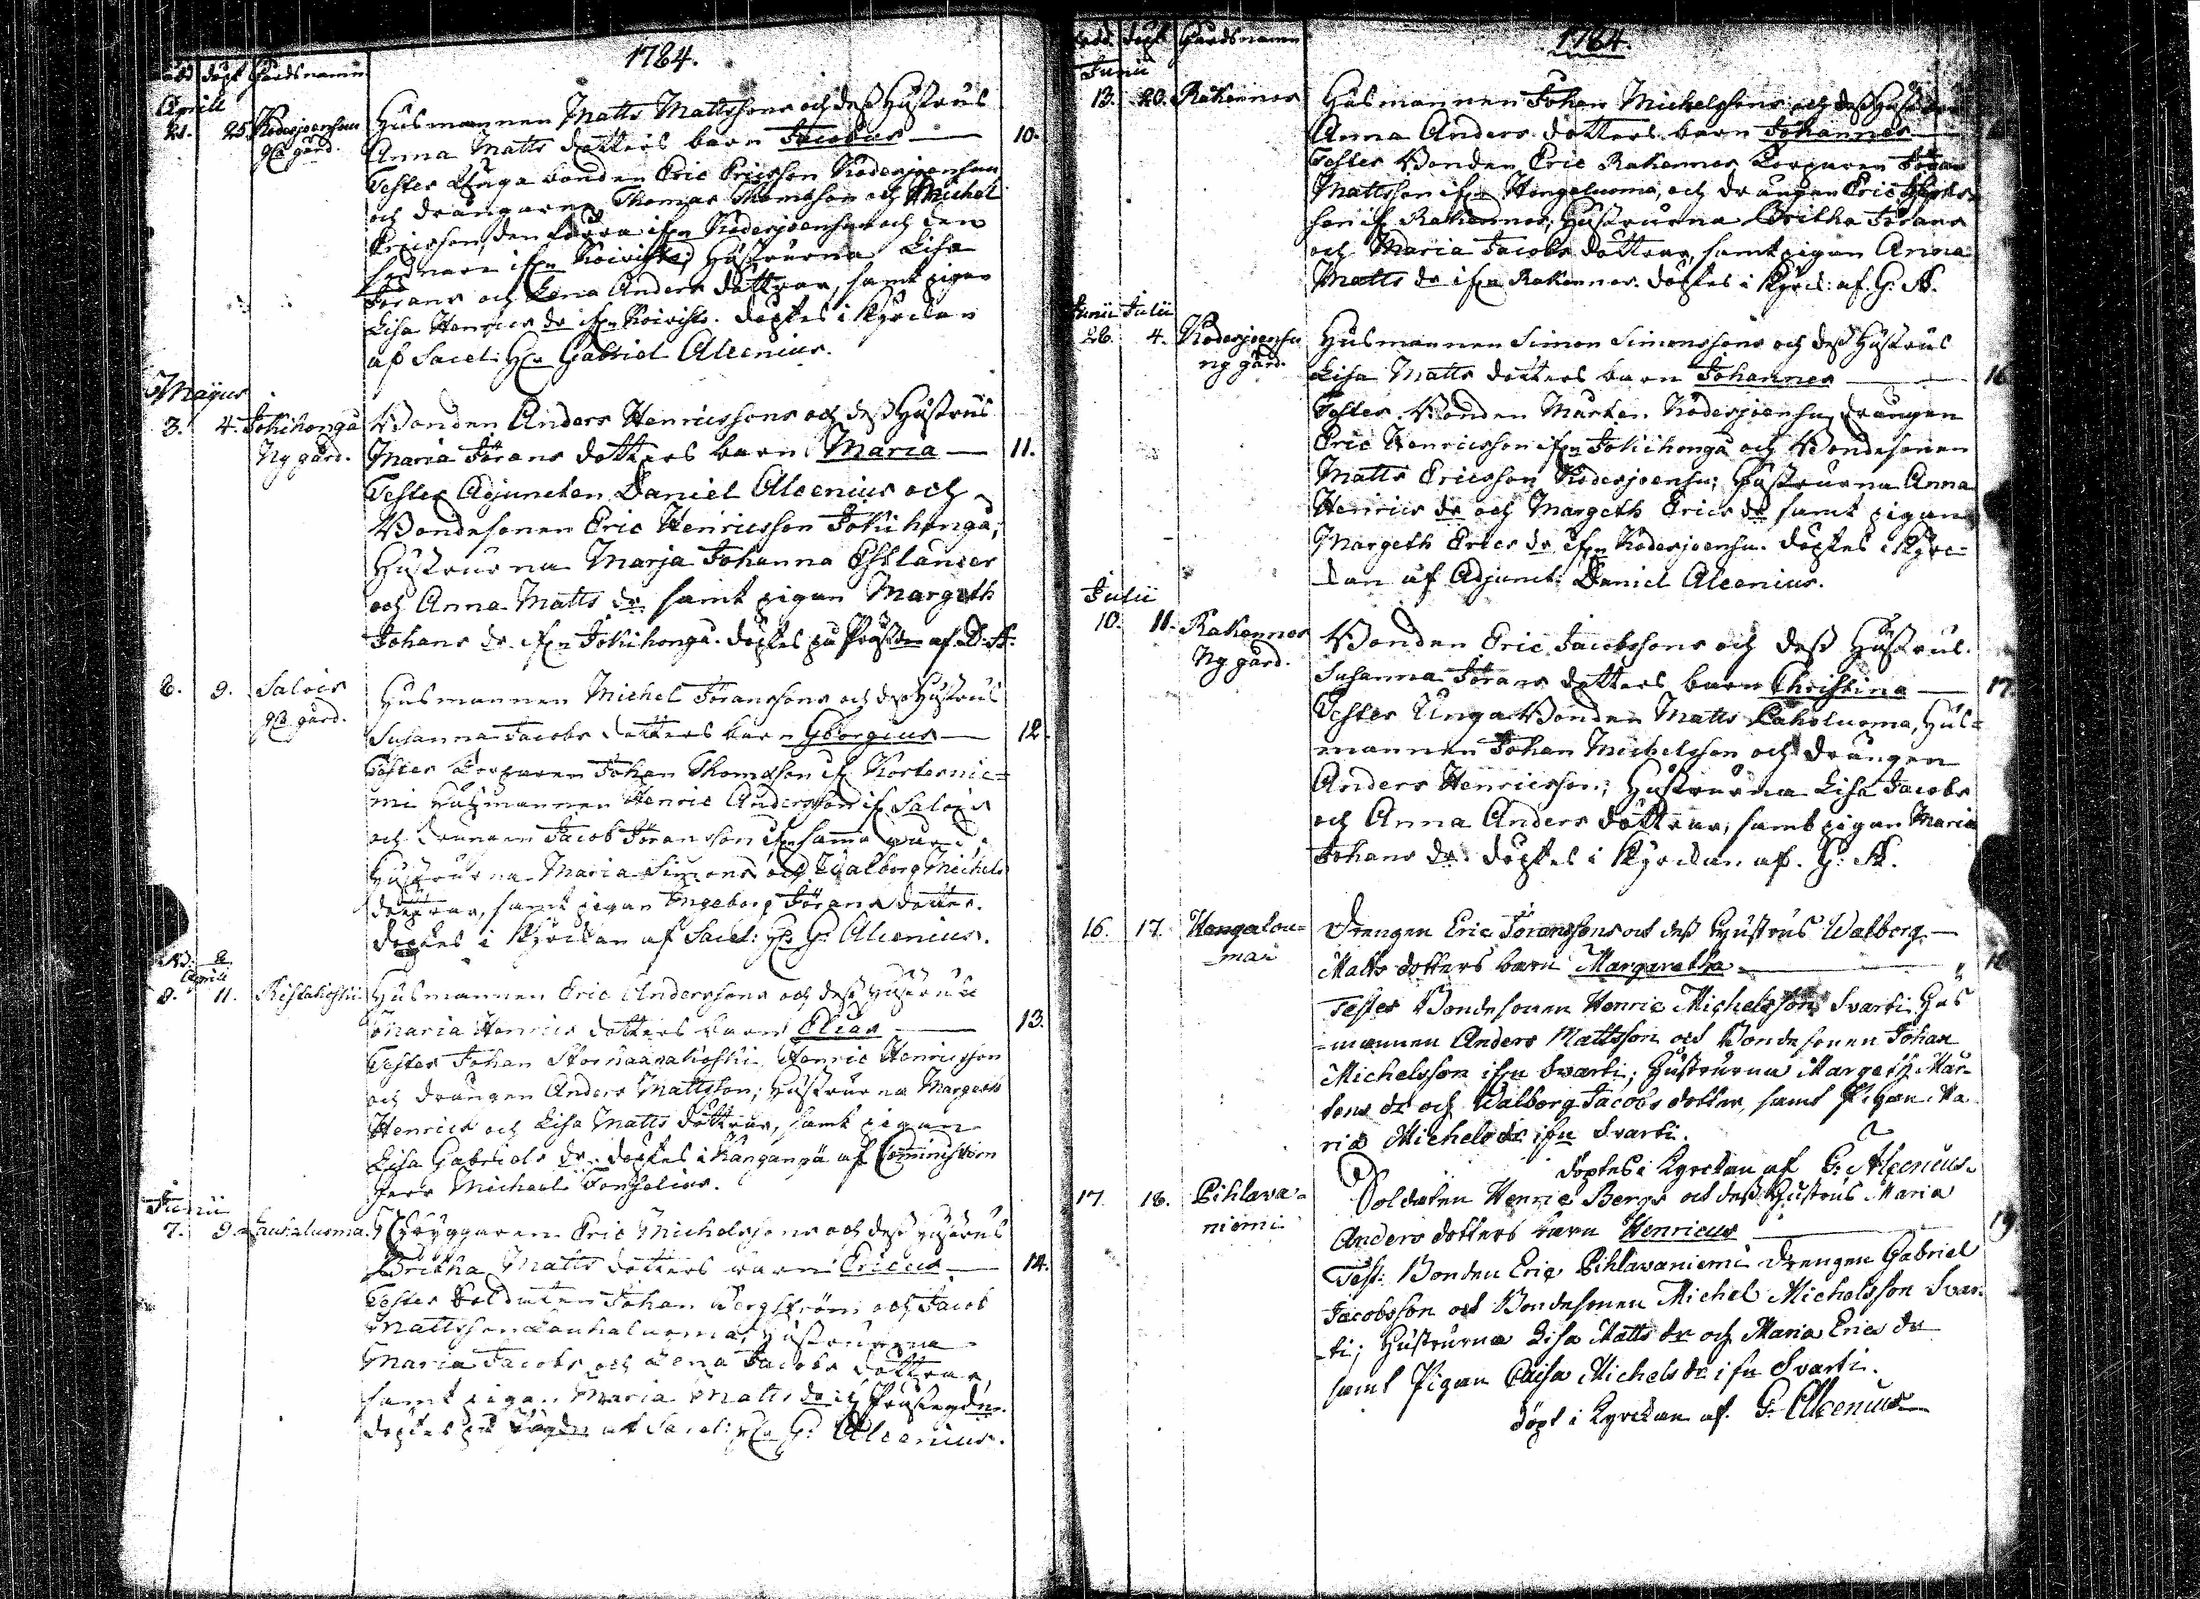 1784.
född döpt Gårdsnamn
Aprill
21. 25. Kodesjoensuu Husmannen Matts Mattssons och dess Hustrus
gla gård. Anna Matts dotters barn Jacobus — 10.
Testes Unga bonden Eric Ericsson Kodesjoensuu
och drängarne Thomas Thomsson och Michel
Ericsson, den förra ifrn Kodesjoensuu och den
sednare ifrn Koivisto; Hustrurna Lisa
Jörans och Lena Anders döttrar, samt pigan
Lisa Henrics dr ifrn Koivisto. döptes i Kyrckan
af Sacel: Hr Gabriel Alcenius.
Majus
3. 4. Jokihonga Bonden Anders Henricssons och dess Hustrus
Ny gård. Maria Jörans dotters barn Maria — 11.
Testes Adjuncten Daniel Alcenius och
Bondesonen Eric Henricsson Jokihonga;
Hustrurna Marja Johanna Estlander
och Anna Matts dr samt pigan Margeth
Johans dr ifrn Jokihonga. döptes på Prästgn af D: A:
8. 9. Salois Husmannen Michel Jöranssons och dess Hustrus
gla gård. Susanna Jacobs dotters barn Georgius — 12.
Testes Torparen Johan Thomasson ifr Kortesnie-
mi Husmannen Henric Andersson ifr Salois
och drängen Jacob Jöransson ifrn samma gård;
Hustrurna Maria Simons och Walborg Michels
döttrar, samt pigan Ingeborg Jörans dotter.
döptes i Kyrckan af Sacel: Hr G: Alcenius.
Aprill
9. 11. Ristikoski Husmannen Eric Anderssons och dess Hustrus
Maria Henrics dotters barn Elias — 13.
Testes Johan Henric Henricsson
och drängen Anders Mattsson; Hustrurna Margeth
Henrics och Lisa Matts döttrar, samt pigan
Lisa Gabriels dr. döptes i Kanganpä af Comministern
Herr Michael Forselius.
Junii
7. 9. Lauhaluoma Nybyggaren Eric Michelssons och dess Hustrus
Britha Matts dotters barn Ericus — 14.
Testes Soldaten Johan Bergström och Jacob
Mattsson Lauhaluoma, Hustrurna
Maria Jacobs och Lena Jacobs döttrar,
samt pigan Maria Matts dr ifr Prästegdn.
döptes på af Sacel: Hr G: Alcenius.
1784.
född döpt Gårdsnamn
Junii
13. 20. Rakennes Husmannen Johan Michelssons och dess Hustrus
Anna Anders dotters barn Johannes
Testes Bonden Eric Rakennes Torparen Johan
Mattsson ifrn Hongoluoma, och drängen Eric
son ifr Rakennes; Hustrurna Britha Jörans
och Maria Jacobs döttrar, samt pigan Anna
Matts dr ifrn Rakennes. döptes i Kyrck: af. G: A.
Junii Julii
26. 4. Kodesjoensuu Husmannen Simon Simonssons och dess Hustrus
ny gård. Lisa Matts dotters barn Johannes — 16
Testes Bonden Marten Kodesjoensuu, drängen
Eric Henricsson ifrn Jokihonga och Bondesonen
Matts Ericsson Kodesjoensu; Hustrurna Anna
Henrics dr och Margeth Erics dr samt pigan
Margeth Erics dr ifrn Kodesjoensu. döptes i Kyrc-
kan af Adjunct: Daniel Alcenius.
Julii
10. 11. Rakennes Bonden Eric Jacobssons och dess Hustrus
Ny gård. Susanna Jörans dotters barn Christina — 17
Testes Unga Bonden Matts Paholuoma, Hus-
mannen Johan Michelsson och drängen
Anders Henricsson; Hustrurna Lisa Jacobs
och Anna Anders döttrar, samt pigan Maria
Johans dr. döptes i Kyrckan af. G: A.
16. 17. Hangalou= Drengen Eric Joranssons och dess Hustrus Walborg —
mai Matts dotters barn Margaretha — 18
Testes Bondesonen Henric Michelsson Svarti Hus
=mannen Anders Mattsson och Bondesonen Johan
Michelsson ifrn Svarti; Hustrurna Margeth Mar-
tens dr och Walborg Jacobs dotter, samt Pigan Ma
ria Michels dr ifrn Svarti.
döptes i Kyrckan af G: Alcenius.
17. 18. Pihlava= Soldaten Henric Bergs och dess Hustrus Maria
niemi Anders dotters barn Henricus — 19.
Test: Bonden Eric Pihlavaniemi Drengen Gabriel
Jacobsson och Bondesonen Michel Michelsson Svar-
ti; Hustrurna Lisa Matts dr och Maria Erics dr
samt Pigan Caisa Michels dr ifrn Svarti.
Döpt i Kyrckan af. G: Alcenius